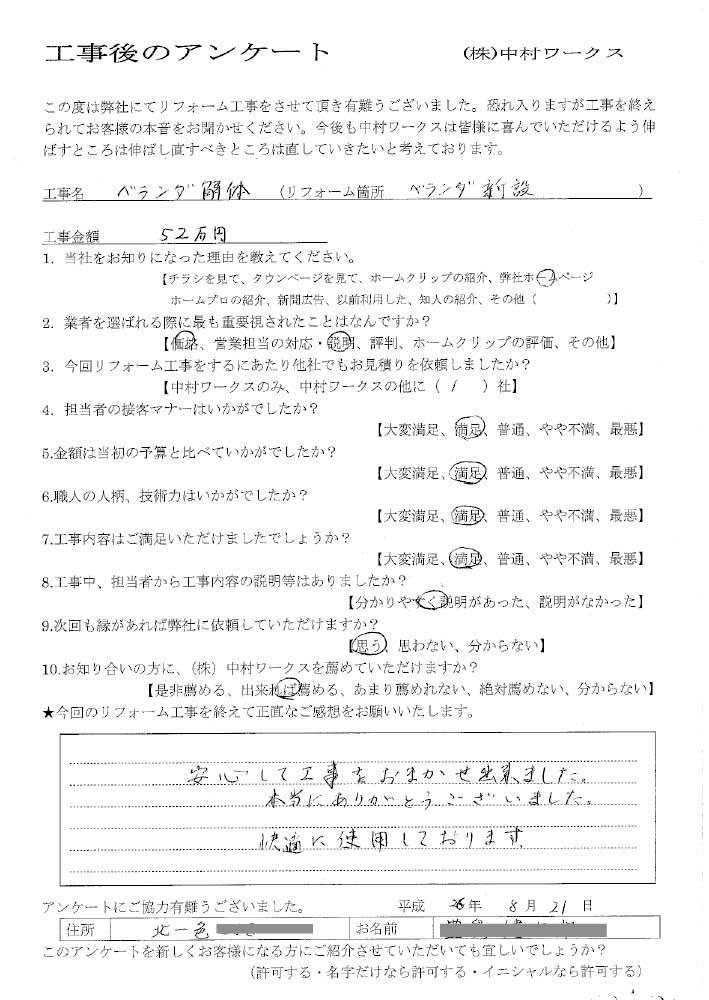 工事後のアンケート (株)中村ワークス
この度は弊社にてリフォーム工事をさせて頂き有難うございました。恐れ入りますが工事を終え
られてお客様の本音をお聞かせください。今後も中村ワークスは皆様に喜んでいただけるよう伸
ばすところは伸ばし直すべきところは直していきたいと考えております。
工事名 ベランダ解体 (リフォーム箇所 ベランダ新設 )
工事金額 52万円
1. 当社をお知りになった理由を教えてください。
【チラシを見て、タウンページを見て、ホームクリップの紹介、弊社ホームページ
ホームプロの紹介、新聞広告、以前利用した、知人の紹介、その他( )】
2. 業者を選ばれる際に最も重要視されたことはなんですか?
【価格、営業担当の対応・説明、評判、ホームクリップの評価、その他】
3. 今回リフォーム工事をするにあたり他社でもお見積りを依頼しましたか?
【中村ワークスのみ、中村ワークスの他に( / )社】
4. 担当者の接客マナーはいかがでしたか?
【大変満足、満足、普通、やや不満、最悪】
5.金額は当初の予算と比べていかがでしたか?
【大変満足、満足、普通、やや不満、最悪】
6.職人の人柄、技術力はいかがでしたか?
【大変満足、満足、普通、やや不満、最悪】
7.工事内容はご満足いただけましたでしょうか?
【大変満足、満足、普通、やや不満、最悪】
8.工事中、担当者から工事内容の説明等はありましたか?
【分かりやすく説明があった、説明がなかった】
9.次回も縁があれば弊社に依頼していただけますか?
【思う、思わない、分からない】
10.お知り合いの方に、(株)中村ワークスを薦めていただけますか?
【是非薦める、出来れば薦める、あまり薦めれない、絶対薦めない、分からない】
★今回のリフォーム工事を終えて正直なご感想をお願いいたします。
安心して工事をおまかせ出来ました。
本当にありがとうございました。
快適に使用しております
アンケートにご協力有難うございました。 平成 26年 8月 21日
住所 北一色 お名前
このアンケートを新しくお客様になる方にご紹介させていただいても宜しいでしょうか?
(許可する・名字だけなら許可する・イニシャルなら許可する)